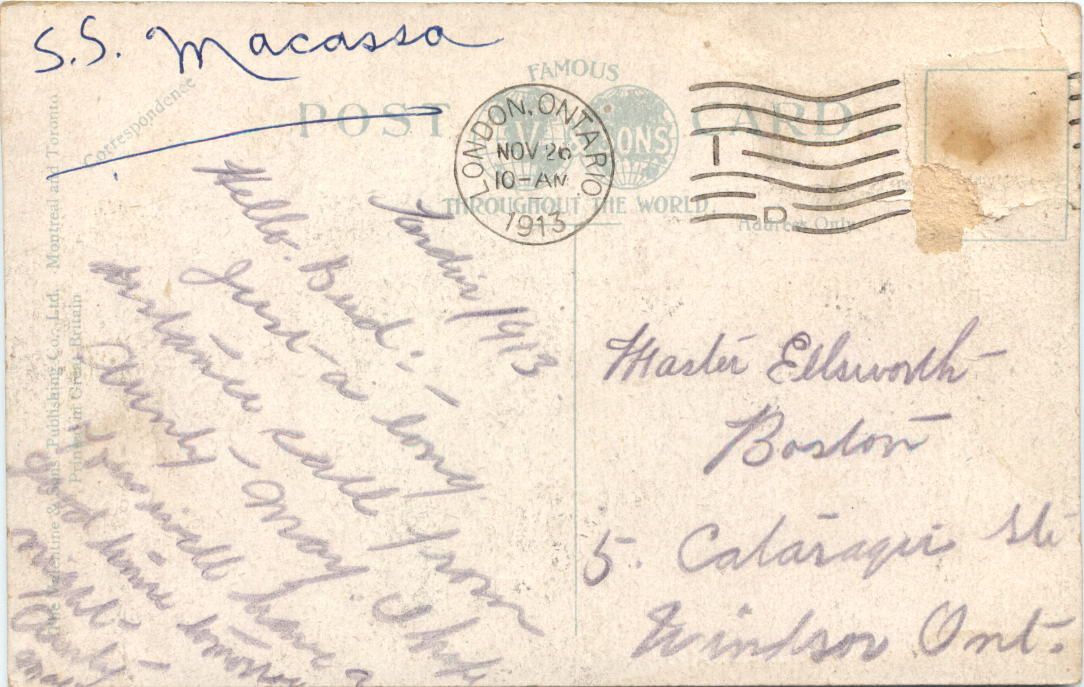 S.S. Macassa
Correspondence
FAMOUS
POST CARD
VAL SONS
THROUGHOUT THE WORLD
Address Only
LONDON, ONTARIO
NOV 26
10-AM
1913
The Valentine & Sons Publishing Co., Ltd. Montreal and Toronto
Printed in Great Britain
1913
Hello. Bud:-
Just a long
distance call from
Aunty May. I hope
you will have a
good time tomorrow
night-
Aunty
May
Master Ellsworth
Boston
5. Cataraqui Ste
Windsor Ont.